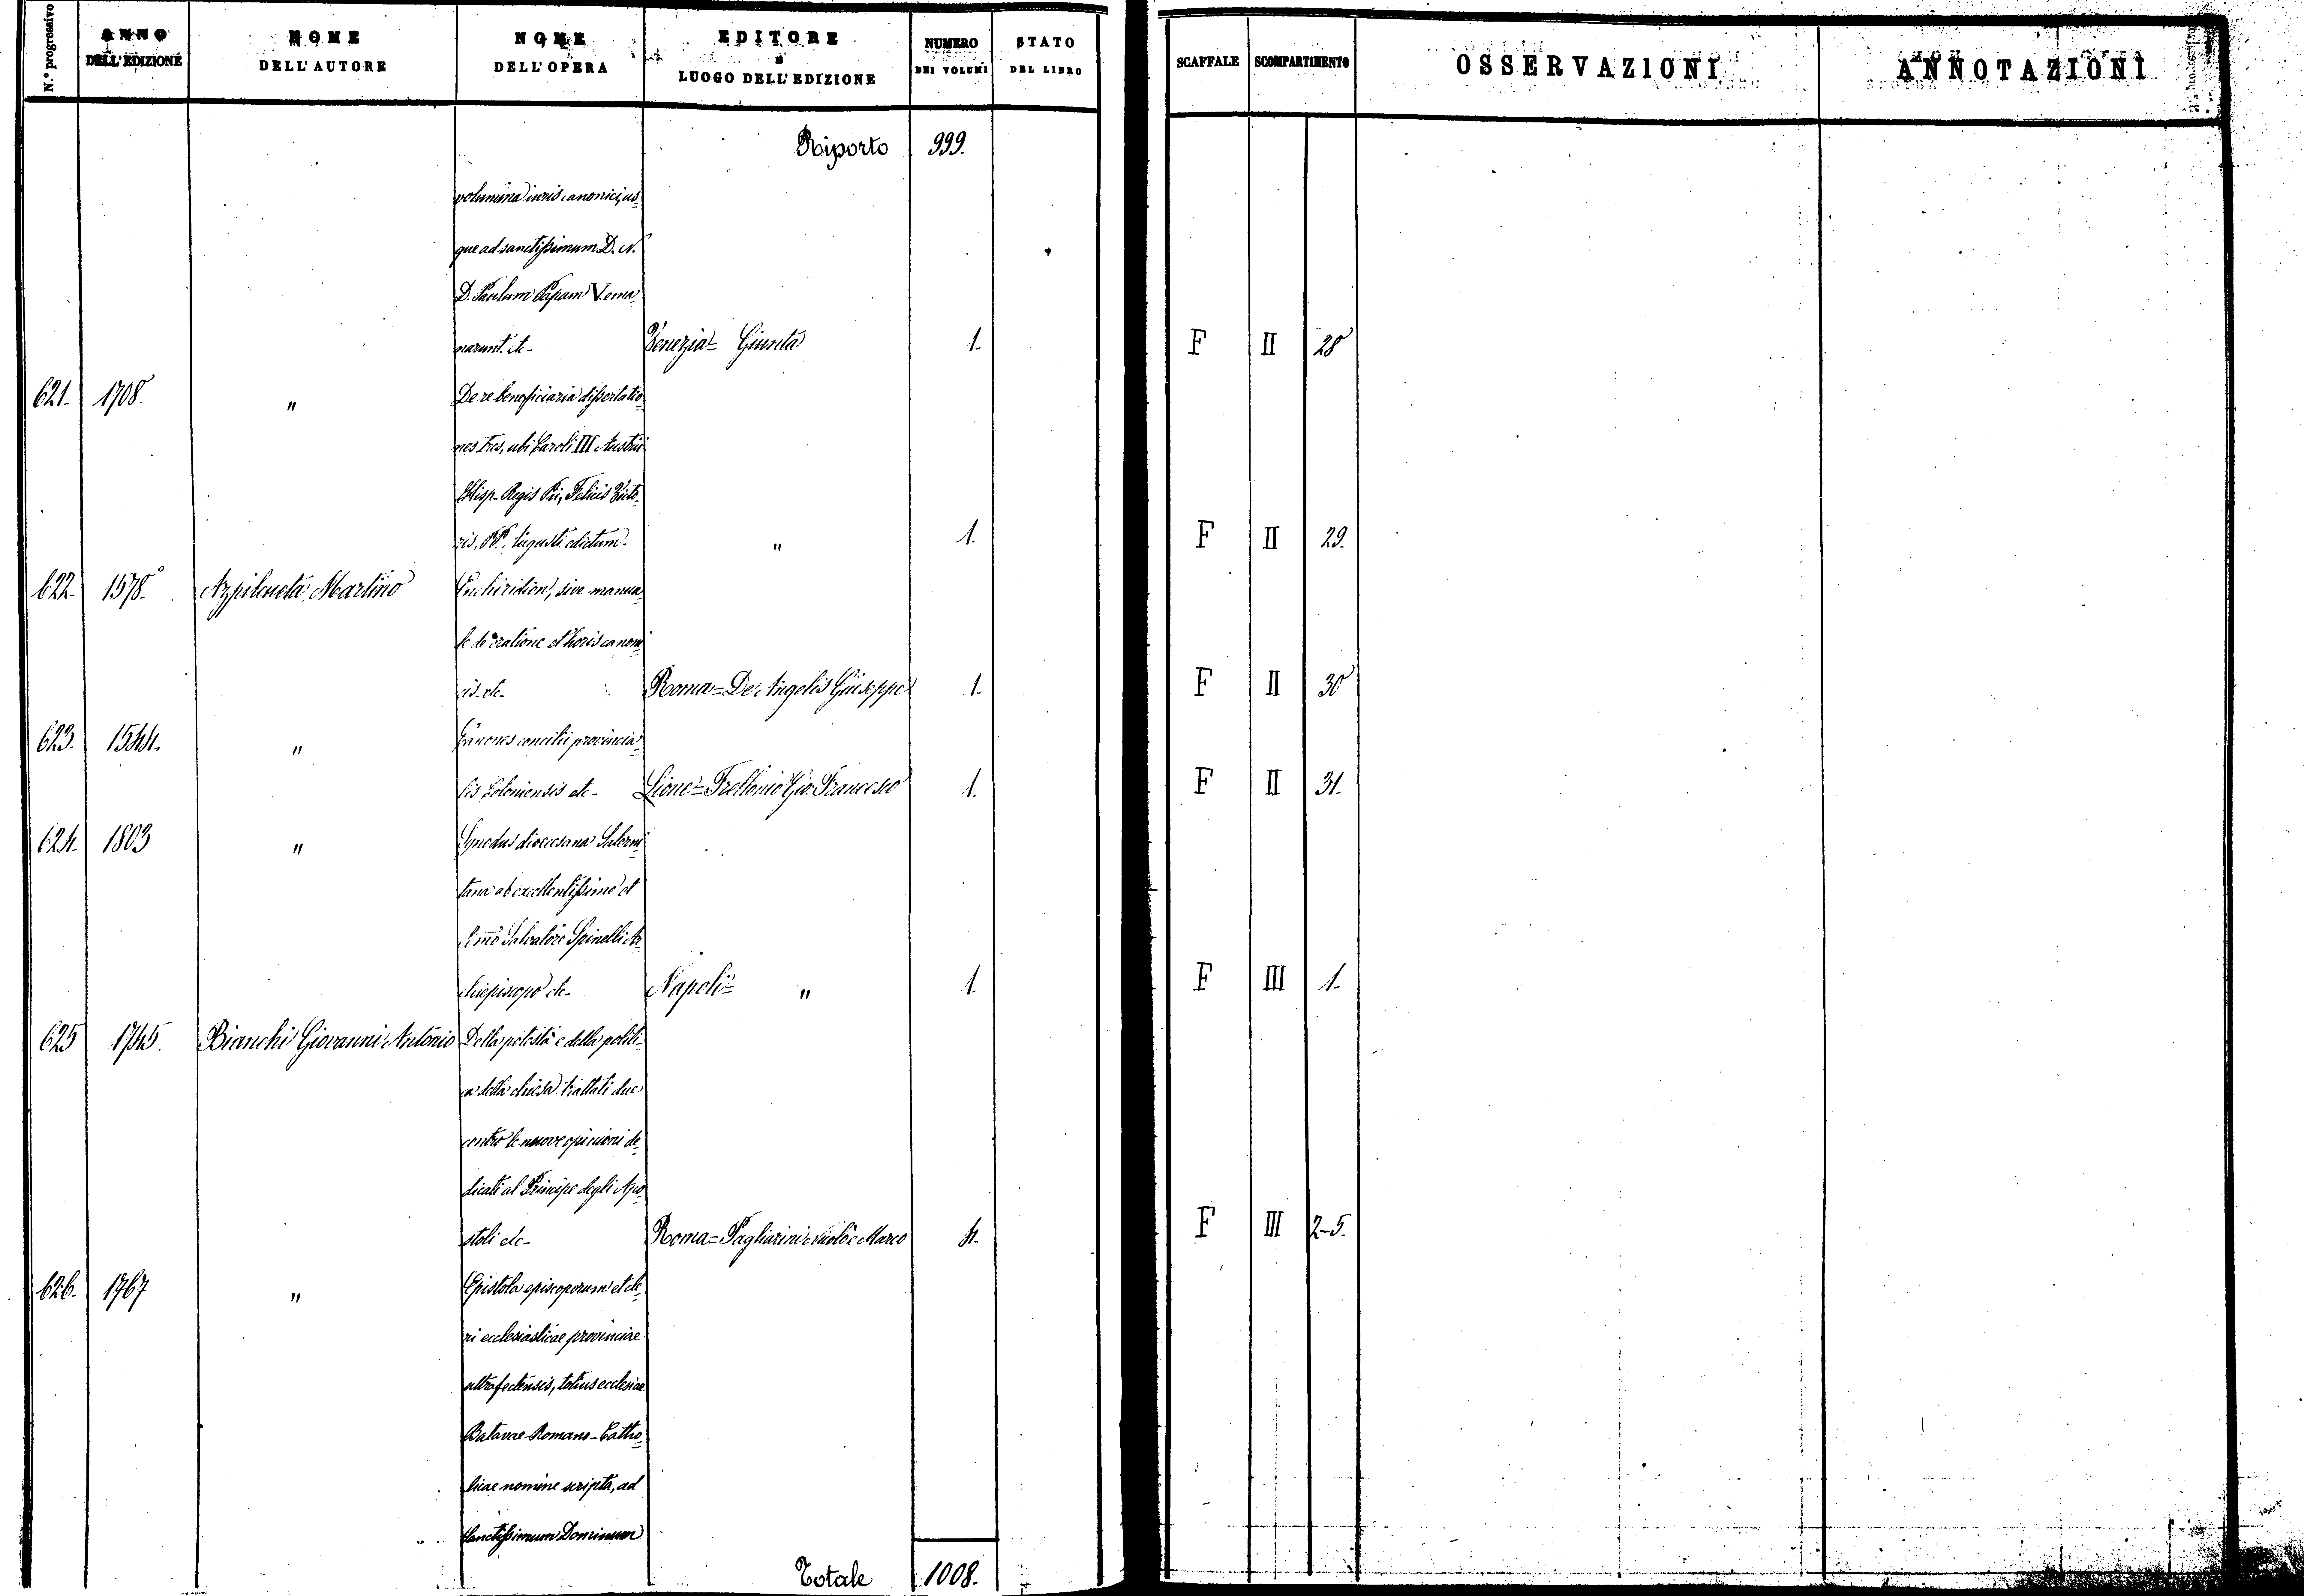 N.° progressivo | ANNO DELL'EDIZIONE | NOME DELL'AUTORE | NOME DELL'OPERA | EDITORE E LUOGO DELL'EDIZIONE | NUMERO DEI VOLUMI | STATO DEL LIBRO | SCAFFALE | SCOMPARTIMENTO | OSSERVAZIONI | ANNOTAZIONI
Riporto 999.
volumina iuris canonici, us-
que ad sanctissimum D. N.
D. Paulum Papam V. ema-
narunt. etc- Venezia= Giunta 1. F II 28
621. 1708. " De re beneficiaria dissertatio-
nes tres, ubi Caroli III Austrii
Hisp- Regis Pii, Felicis Victo-
ris, PP. Augusti edictum. " 1. F II 29.
622. 1578. Azpilcueta Martino Enchiridion, sive manua-
le de oratione et horis canoni-
cis- etc- Roma= De Angelis Giuseppe 1. F II 30
623. 1544. " Canones concilii provincia-
lis Coloniensis etc- Lione= Frellonio Gio: Francesco 1. F II 31.
624. 1803 " Synodus dioecesana Salerni-
tana ab excellentissimo et
Salvatore Spinelli Ar-
chiepiscopo etc- Napoli= " 1. F III 1.
625 1745. Bianchi Giovanni Antonio Della potestà e della politi-
ca della chiesa. trattati due
contro le nuove opinioni de-
dicati al Principe degli Apo-
stoli etc- Roma= Pagliarini Nicolò e Marco 4. F III 2-5.
626. 1767 " Epistola episcoporum et cle-
ri ecclesiasticae provinciae
ultrafectensis, totius ecclesiae
Batavae Romano-Catho-
licae nomine scripta, ad
Sanctissimum Dominum
Totale 1008.